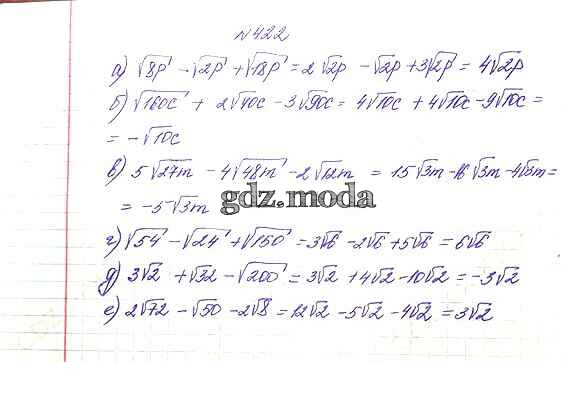 №422
а) √8p - √2p + √18p = 2√2p - √2p + 3√2p = 4√2p
б) √160c + 2√40c - 3√90c = 4√10c + 4√10c - 9√10c =
= -√10c
в) 5√27m - 4√48m - 2√12m = 15√3m - 16√3m - 4√3m =
= -5√3m
gdz.moda
г) √54 - √24 + √150 = 3√6 - 2√6 + 5√6 = 6√6
д) 3√2 + √32 - √200 = 3√2 + 4√2 - 10√2 = -3√2
е) 2√72 - √50 - 2√8 = 12√2 - 5√2 - 4√2 = 3√2